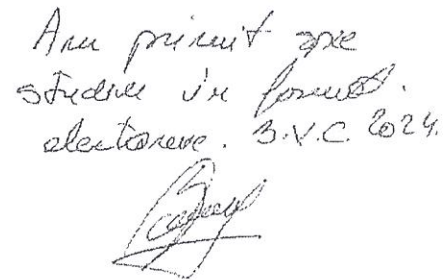 Am primit spre
studiu în format
electronic. B.V.C. 2024.